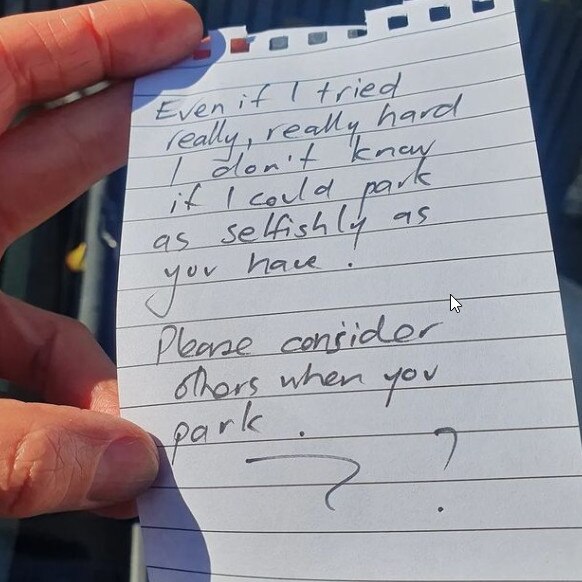 Even if I tried
really, really hard
I don't know
if I could park
as selfishly as
you have.
Please consider
others when you
park.
?